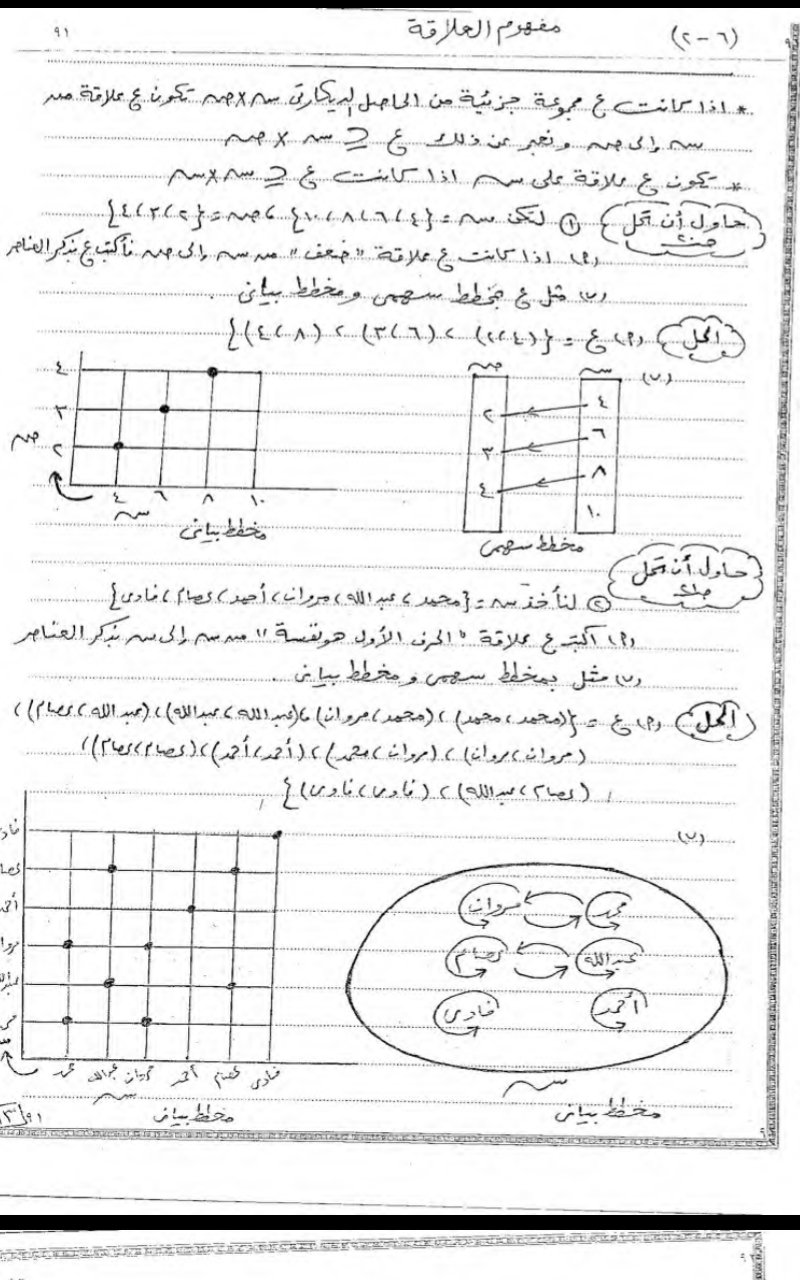 (٦-٢) مفهوم العلاقة ٩١
* اذا كانت ع مجموعة جزئية من الحاصل الديكارتى سـ × صـ تكون ع علاقة من
سـ إلى صـ ونعبر عن ذلك ع ⊆ سـ × صـ
* تكون ع علاقة على سـ اذا كانت ع ⊆ سـ × سـ
حاول أن تحل
① لتكن سـ = {٤، ٦، ٨، ١٠}، صـ = {٢، ٣، ٤}
(٩) اذا كانت ع علاقة "ضعف" من سـ إلى صـ فأكتب ع بذكر العناصر
(ب) مثل ع بمخطط سهمى ومخطط بيانى.
الحل (٩) ع = {(٤، ٢)، (٦، ٣)، (٨، ٤)}
(ب)
سـ صـ
٤ ٢
٦ ٣
٨ ٤
١٠
مخطط سهمى
٤
٣
٢
صـ
٤ ٦ ٨ ١٠
سـ
مخطط بيانى
حاول أن تحل
② لنأخذ سـ = {محمد، عبد الله، مروان، أحمد، عصام، فادى}
(٩) اكتب ع علاقة "الحرف الأول هو نفسة" من سـ إلى سـ بذكر العناصر
(ب) مثل بمخطط سهمى ومخطط بيانى.
الحل (٩) ع = {(محمد، محمد)، (محمد، مروان)، (عبد الله، عبدالله)، (عبد الله، عصام)،
(مروان، مروان)، (مروان، محمد)، (أحمد، أحمد)، (عصام، عصام)،
(عصام، عبدالله)، (فادى، فادى)}
(ب)
محمد مروان
عبدالله عصام
أحمد فادى
سـ
مخطط بيانى
محمد عبدالله مروان أحمد عصام فادى
سـ
مخطط بيانى
٩١